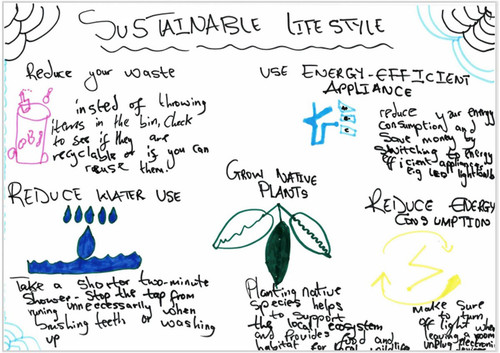 SUSTAINABLE LIFESTYLE
Reduce your waste
insted of throwing
items in the bin, check
to see if they are
recyclable or is you can
reuse them.
USE ENERGY-EFFICIENT
APPLIANCE
reduce your energy
consumption and
save money by
switching to energy
efficient appliances
e.g LED lightbulb
REDUCE WATER USE
Take a shorter two-minute
shower - Stop the tap from
runing unnecessarily when
brushing teeth or washing
up
GROW NATIVE
PLANTS
Planting native
species helps
to support
the local ecosystem
and provides food and
habitat for
REDUCE ENERGY
CONSUMPTION
Make sure
to turn
off light when
leaving a room
unplug electronic